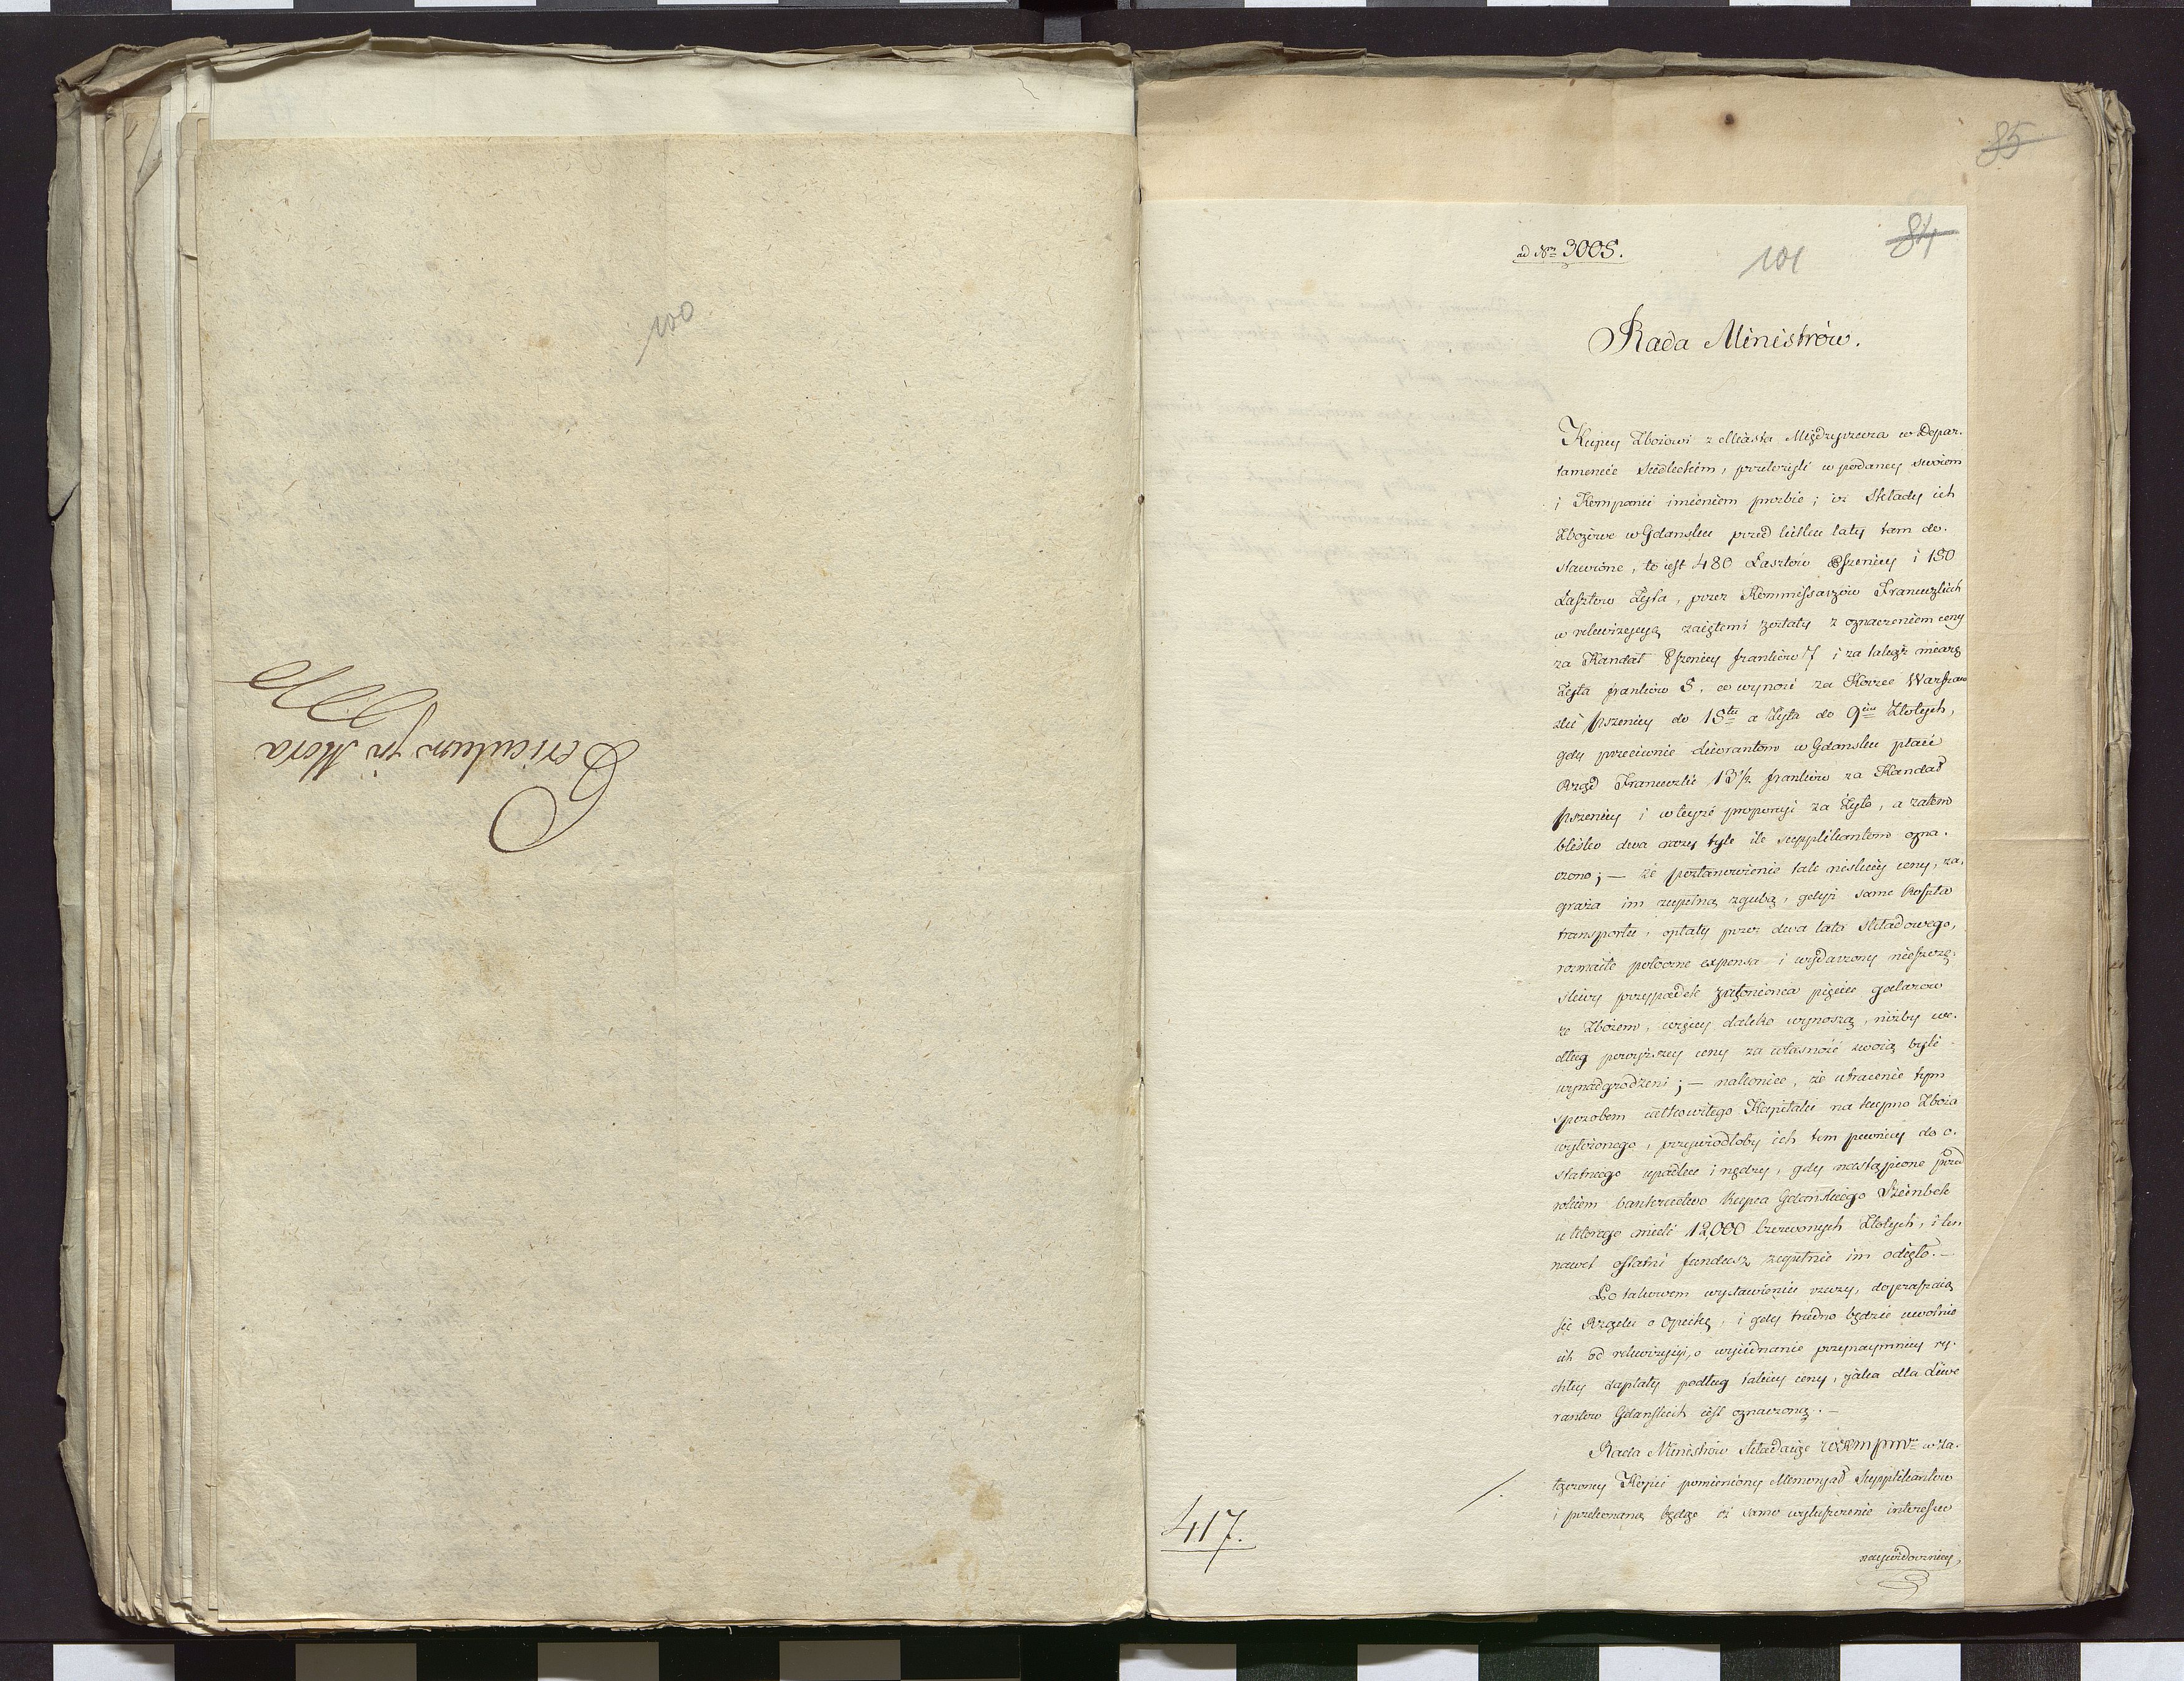 100
Periculum in Mora
85
84
101
ad Nrm 3005.
Rada Ministrów.
Kupcy Zbożowi z Miasta Międzyrzecza w Depar-
tamencie Siedleckim, przełożyli w podaney swoiem
i Kompanii imieniem prozbie; iż Składy ich
Zbożowe w Gdansku przed kilku laty tam do-
stawione, to iest 480 Łasztów Pszenicy i 180
Łasztow Żyta, przez Kommissarzów Francuzkich
w rekwizycyą zaiętemi zostały z oznaczeniem ceny
za Kandat Pszenicy franków 7 i za takąż miarę
Żyta franków 5. co wynosi za Korzec Warszaw
ski pszenicy do 15tu a Żyta do 9ciu Złotych,
gdy przeciwnie liwrantom w Gdansku płaci
Rząd Francuzki 13 1/2 franków za Kandat
pszenicy i w teyże proporcyi za Żyto, a zatem
blisko dwa razy tyle ile supplikantom ozna-
czono; — że postanowienie tak niskiey ceny, za-
graża im zupełną zgubą, gdyż same koszta
transportu, opłaty przez dwa lata składowego,
rozmaite poboczne expensa i wydarzony nieszczę-
śliwy przypadek zatonienia pięciu galarow
ze Zbożem, więcey daleko wynoszą, niżby we-
dług powyższey ceny za własność swoią byli
wynadgrodzeni; — nakoniec, że utracenie tym
sposobem całkowitego Kapitału na kupno Zboża
wyłożonego, przywiodłoby ich tem pewniey do o-
statniego upadku i nędzy, gdy nastąpione przed
rokiem bankructwo Kupca Gdanskiego Szeinbek
u którego mieli 12,000 Czerwonych Złotych, i ten
nawet ostatni fundusz zupełnie im odięło. —
Po takowem wystawieniu rzeczy, dopraszaią
się Rządu o Opiekę, i gdy trudno będzie uwolnić
ich od rekwizycyi, o wyiednanie przynaymniey ry-
chłey zapłaty podług takiey ceny, jaka dla Liwe
rantow Gdanskich iest oznaczoną. —
Rada Ministrów składaiąc w za-
łączoney Kopii pomieniony Memoryał Supplikantow
i przekonaną będąc iż samo wyłuszczenie interessu
naywidoczniey,
417.